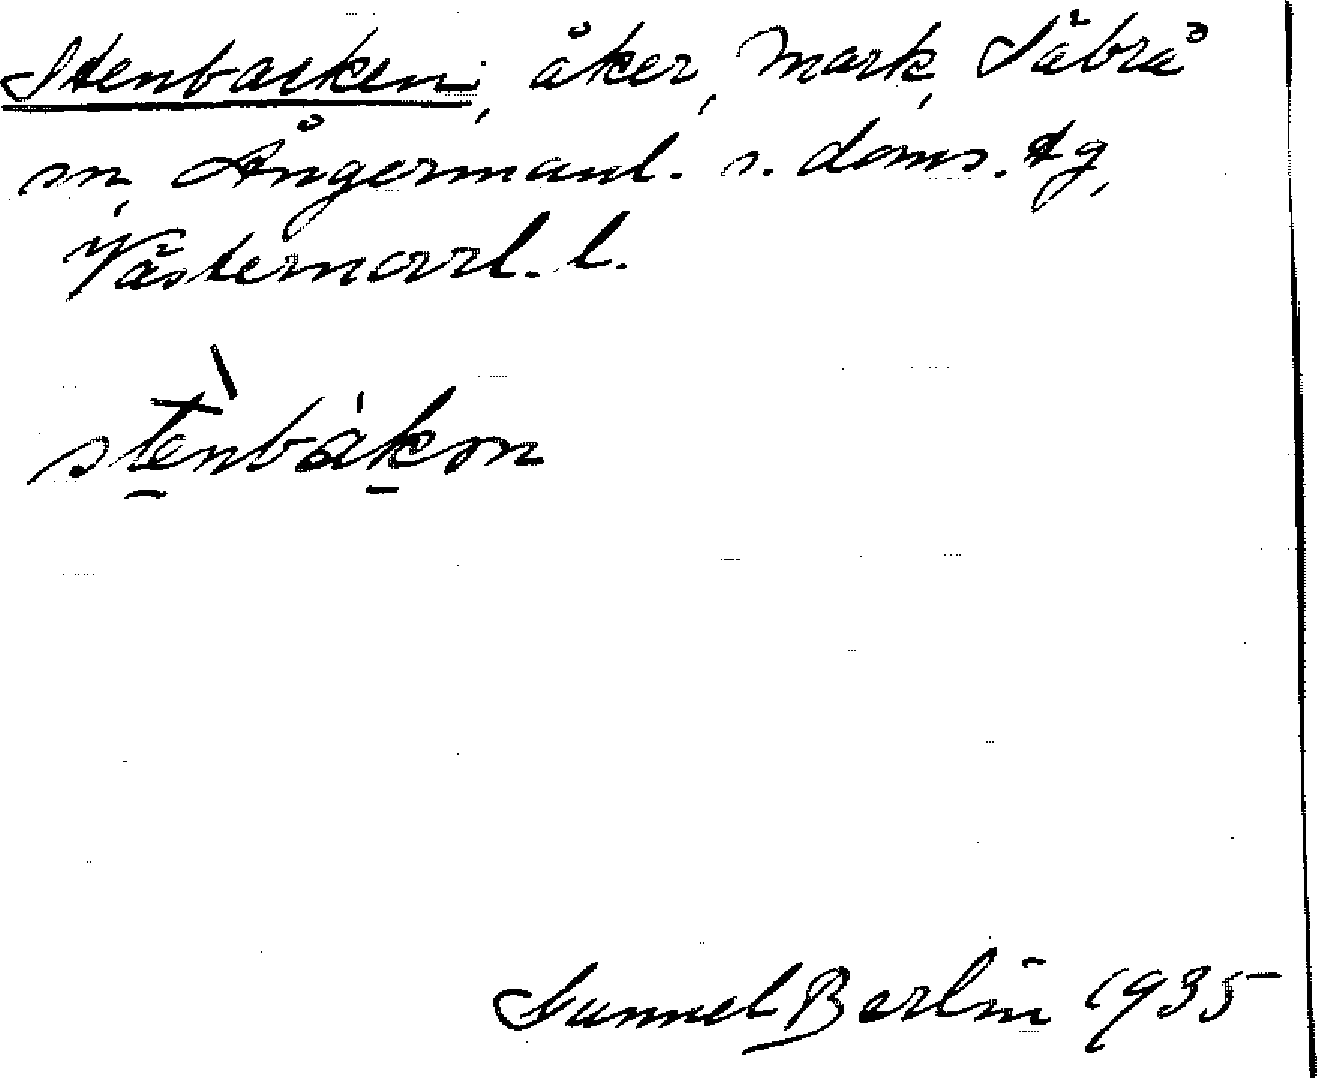 Stenbacken, åker, Mark, Säbrå
sn, Ångermanl. s. doms. tg,
Västernorrl. l.
stènbákon
Gunnel Berlin 1935